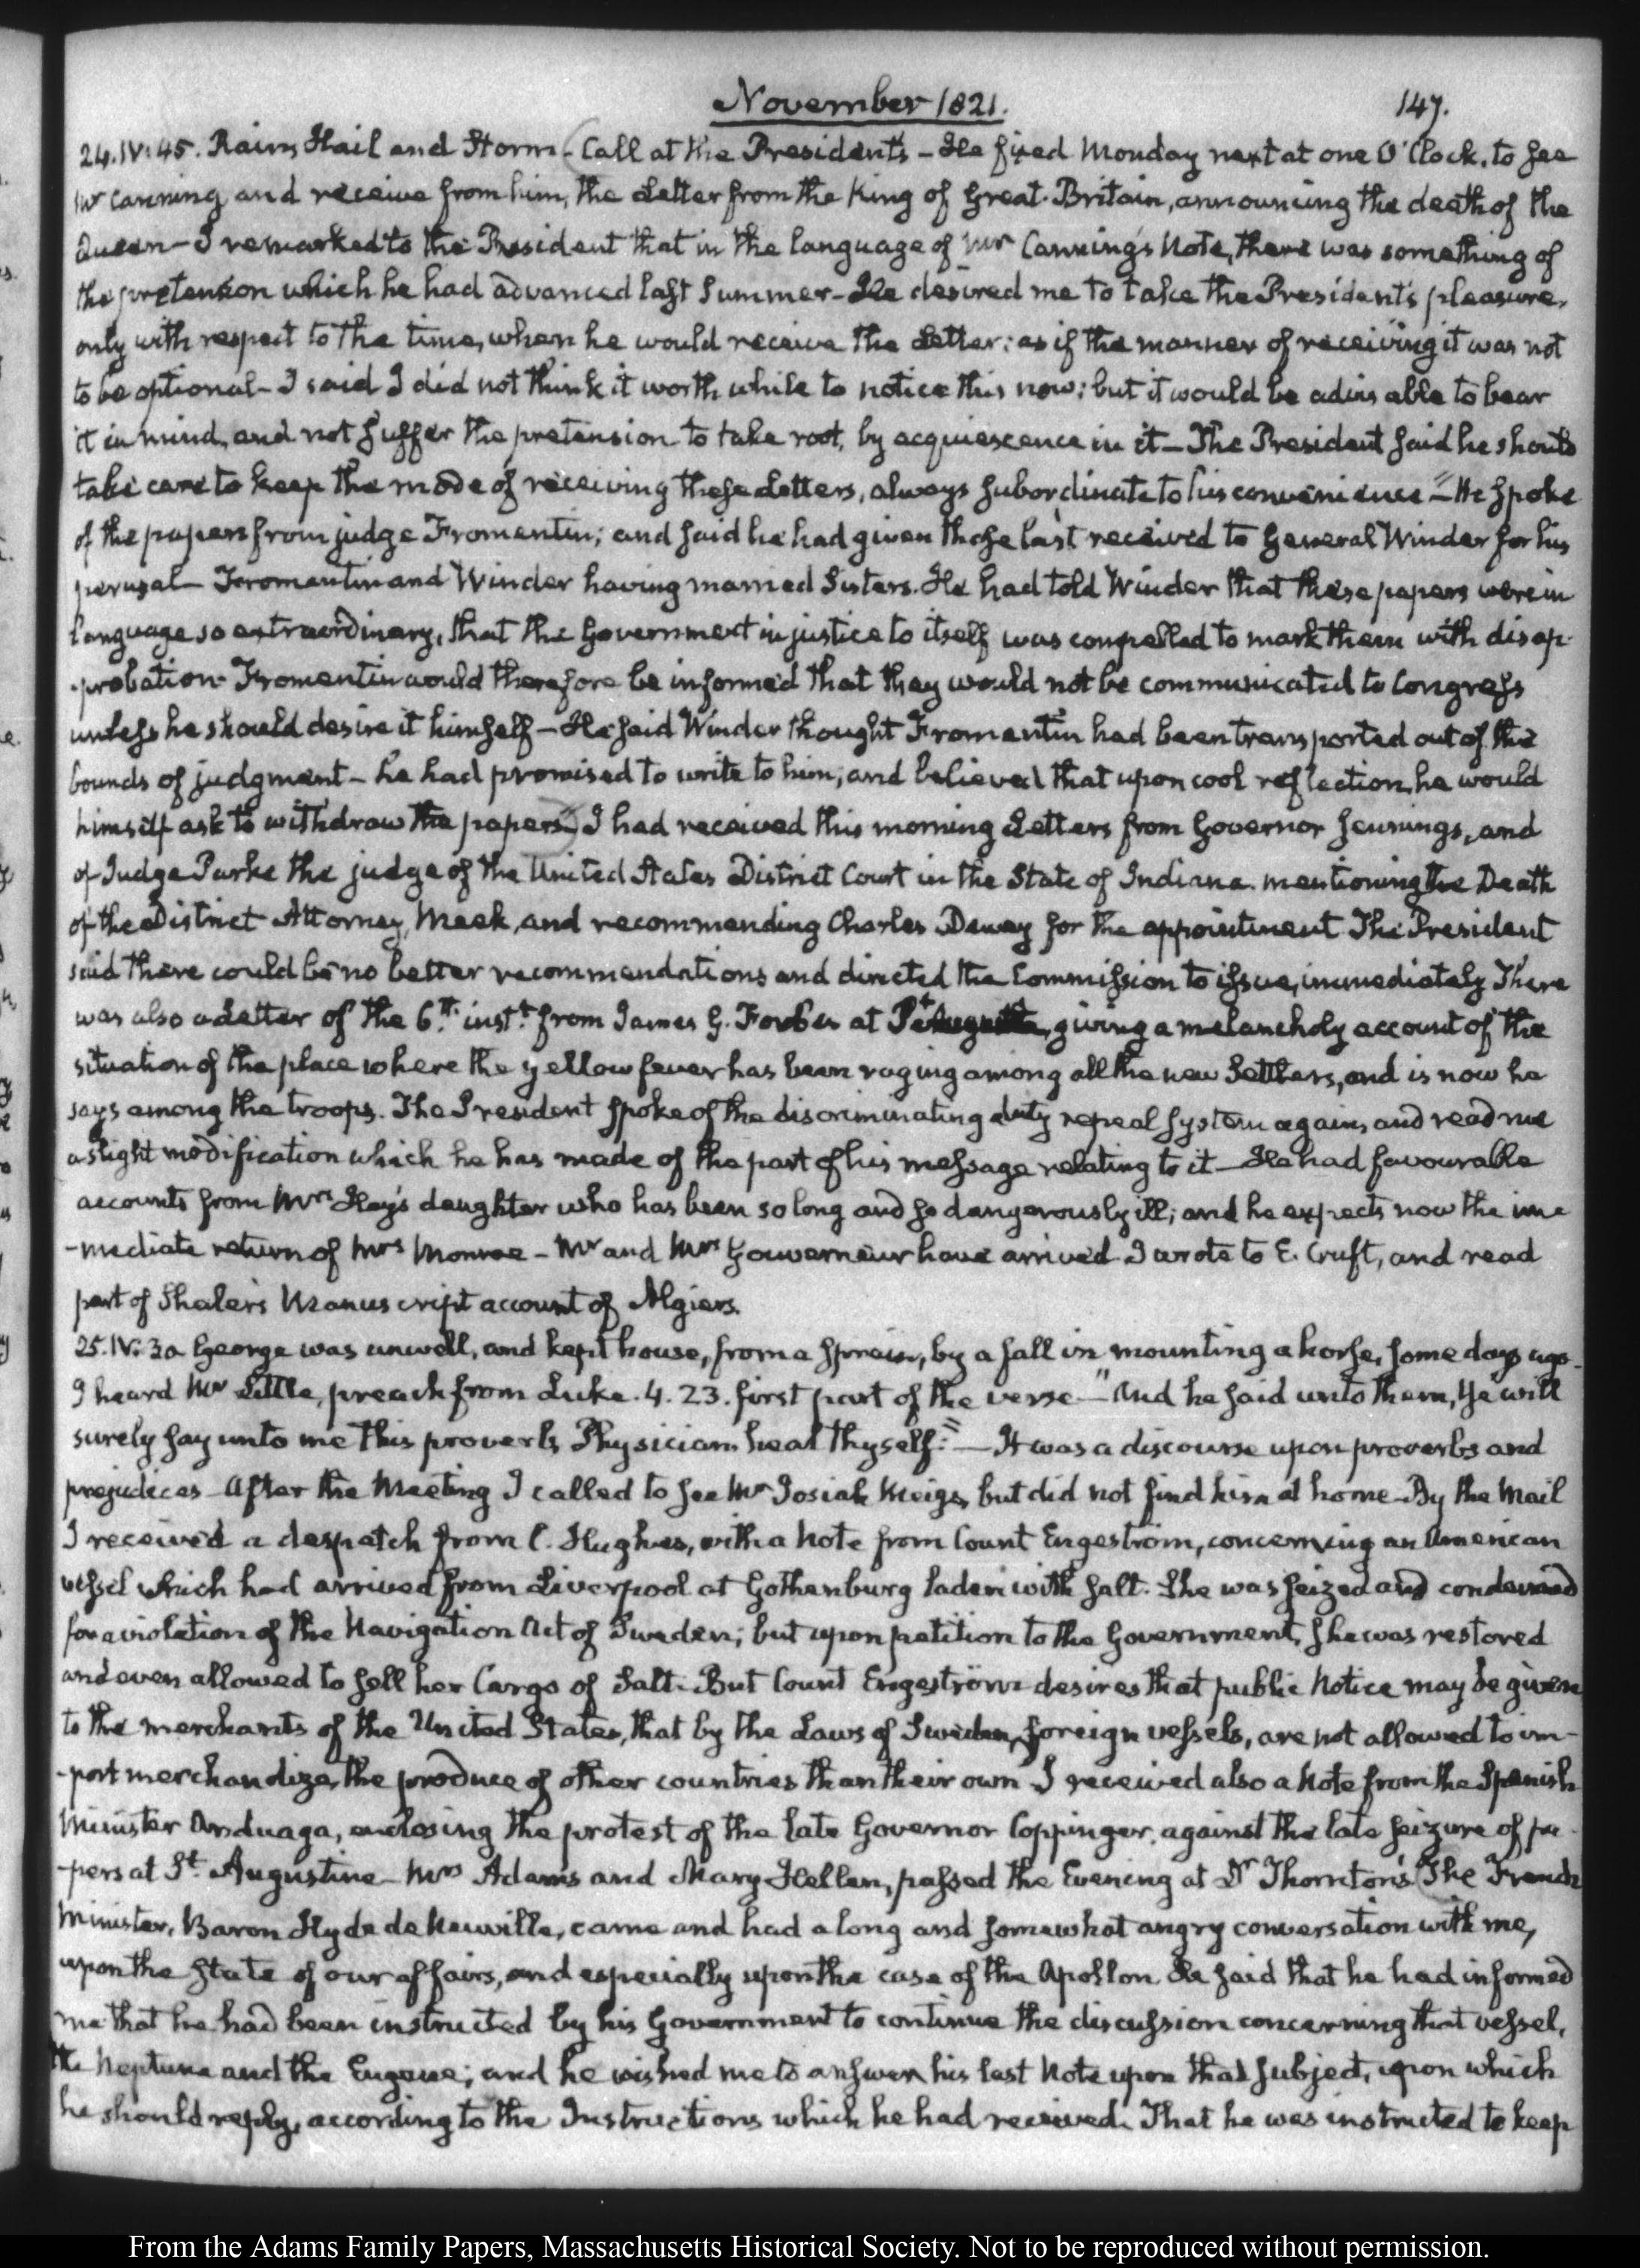 November 1821.
147.
24. IV: 45. Rain, Hail and Storm (Call at the President's - He fixed Monday next at one O'Clock, to see
Mr Canning and receive from him, the Letter from the King of Great-Britain, announcing the death of the
Queen - I remarked to the President that in the language of Mr Canning's Note, there was something of
the pretension which he had advanced last Summer - He desired me to take the President's pleasure,
only with respect to the time, when he would receive the Letter: as if the manner of receiving it was not
to be optional - I said I did not think it worth while to notice this now: but it would be advisable to bear
it in mind, and not suffer the pretension to take root, by acquiescence in it - The President said he should
take care to keep the mode of receiving these Letters, always subordinate to his convenience - He spoke
of the papers from judge Fromentin; and said he had given those last received to General Winder for his
perusal - Fromentin and Winder having married Sisters. He had told Winder that these papers were in
language so extraordinary, that the Government in justice to itself was compelled to mark them with disap-
-probation Fromentin would therefore be informed that they would not be communicated to Congress
unless he should desire it himself - He said Winder thought Fromentin had been transported out of the
bounds of judgment - he had promised to write to him; and believed that upon cool reflection, he would
himself ask to withdraw the papers.) I had received this morning Letters from Governor Jennings, and
of Judge Parke the judge of the United States District Court in the State of Indiana. mentioning the Death
of the District Attorney, Meek, and recommending Charles Dewey for the appointment The President
said there could be no better recommendations and directed the Commission to issue, immediately There
was also a Letter of the 6th. instt. from James G. Forbes at giving a melancholy account of the
situation of the place where the yellow fever has been raging among all the new Settlers, and is now he
says among the troops. The President spoke of the discriminating duty repeal system again, and read me
a slight modification which he has made of the part of his message relating to it - He had favourable
accounts from Mrs Hay's daughter who has been so long and so dangerously ill; and he expects now the im-
-mediate return of Mrs Monroe - Mr and Mrs Gouverneur have arrived. I wrote to E. Cruft, and read
part of Shaler's Manuscript account of Algiers.
25. IV: 30 George was unwell, and kept house, from a sprain, by a fall in mounting a horse, some days ago.
I heard Mr Little, preach from Luke. 4. 23. first part of the verse - "And he said unto them, Ye will
surely say unto me this proverb, Physician heal thyself:" - It was a discourse upon proverbs and
prejudices - After the Meeting I called to see Mr Josiah Meigs, but did not find him at home - By the Mail
I received a despatch from C. Hughes, with a Note from Count Engeström, concerning an American
vessel which had arrived from Liverpool at Gothenburg laden with salt. She was seized and condemned
for a violation of the Navigation Act of Sweden; but upon petition to the Government, she was restored
and even allowed to sell her Cargo of Salt. But Count Engeström desires that public Notice may be given
to the merchants of the United States, that by the Laws of Sweden, foreign vessels, are not allowed to im-
-port merchandize, the produce of other countries than their own I received also a Note from the Spanish
Minister Anduaga, enclosing the protest of the late Governor Coppinger, against the late seizure of pa-
-pers at St. Augustine - Mrs Adams and Mary Hellen, passed the Evening at Dr Thornton's (The French
Minister, Baron Hyde de Neuville, came and had a long and somewhat angry conversation with me,
upon the State of our affairs, and especially upon the case of the Apollon He said that he had informed
me that he had been instructed by his Government to continue the discussion concerning that vessel,
the Neptune and the Eugene; and he wished me to answer his last Note upon that subject, upon which
he should reply, according to the Instructions which he had received. That he was instructed to keep
From the Adams Family Papers, Massachusetts Historical Society. Not to be reproduced without permission.